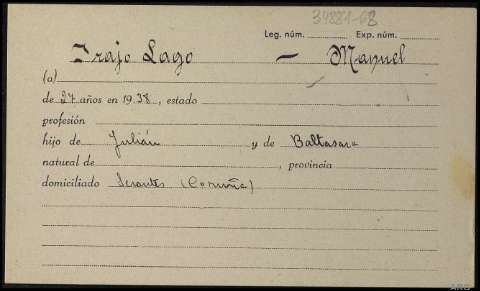 39881-68
Leg. núm. Exp. núm.
Irajo Lago — Manuel
(a)
de 27 años en 1938, estado
profesión
hijo de Julián y de Baltasara
natural de , provincia
domiciliado Serantes (Coruña)